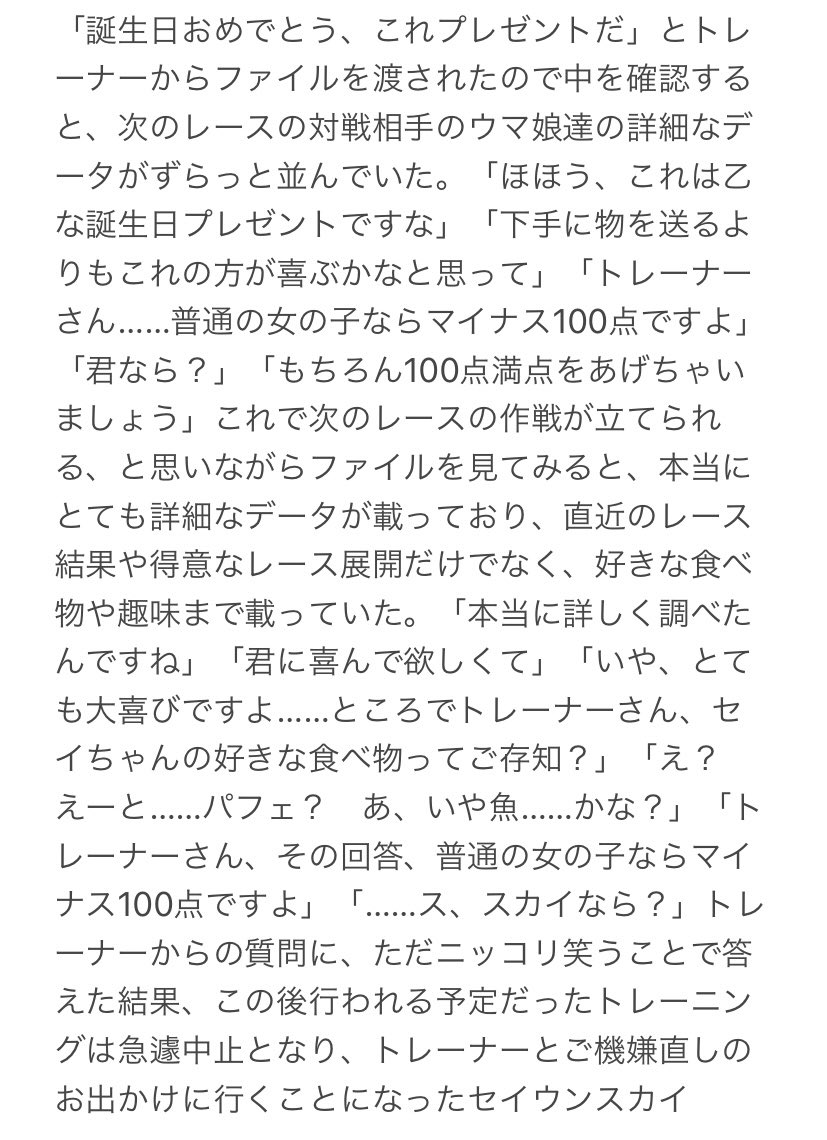 「誕生日おめでとう、これプレゼントだ」とトレ
ーナーからファイルを渡されたので中を確認する
と、次のレースの対戦相手のウマ娘達の詳細なデ
ータがずらっと並んでいた。「ほほう、これは乙
な誕生日プレゼントですな」「下手に物を送るよ
りもこれの方が喜ぶかなと思って」「トレーナー
さん……普通の女の子ならマイナス100点ですよ」
「君なら？」「もちろん100点満点をあげちゃい
ましょう」これで次のレースの作戦が立てられ
る、と思いながらファイルを見てみると、本当に
とても詳細なデータが載っており、直近のレース
結果や得意なレース展開だけでなく、好きな食べ
物や趣味まで載っていた。「本当に詳しく調べた
んですね」「君に喜んで欲しくて」「いや、とて
も大喜びですよ……ところでトレーナーさん、セ
イちゃんの好きな食べ物ってご存知？」「え？
えーと……パフェ？　あ、いや魚……かな？」「ト
レーナーさん、その回答、普通の女の子ならマイ
ナス100点ですよ」「……ス、スカイなら？」トレ
ーナーからの質問に、ただニッコリ笑うことで答
えた結果、この後行われる予定だったトレーニン
グは急遽中止となり、トレーナーとご機嫌直しの
お出かけに行くことになったセイウンスカイ